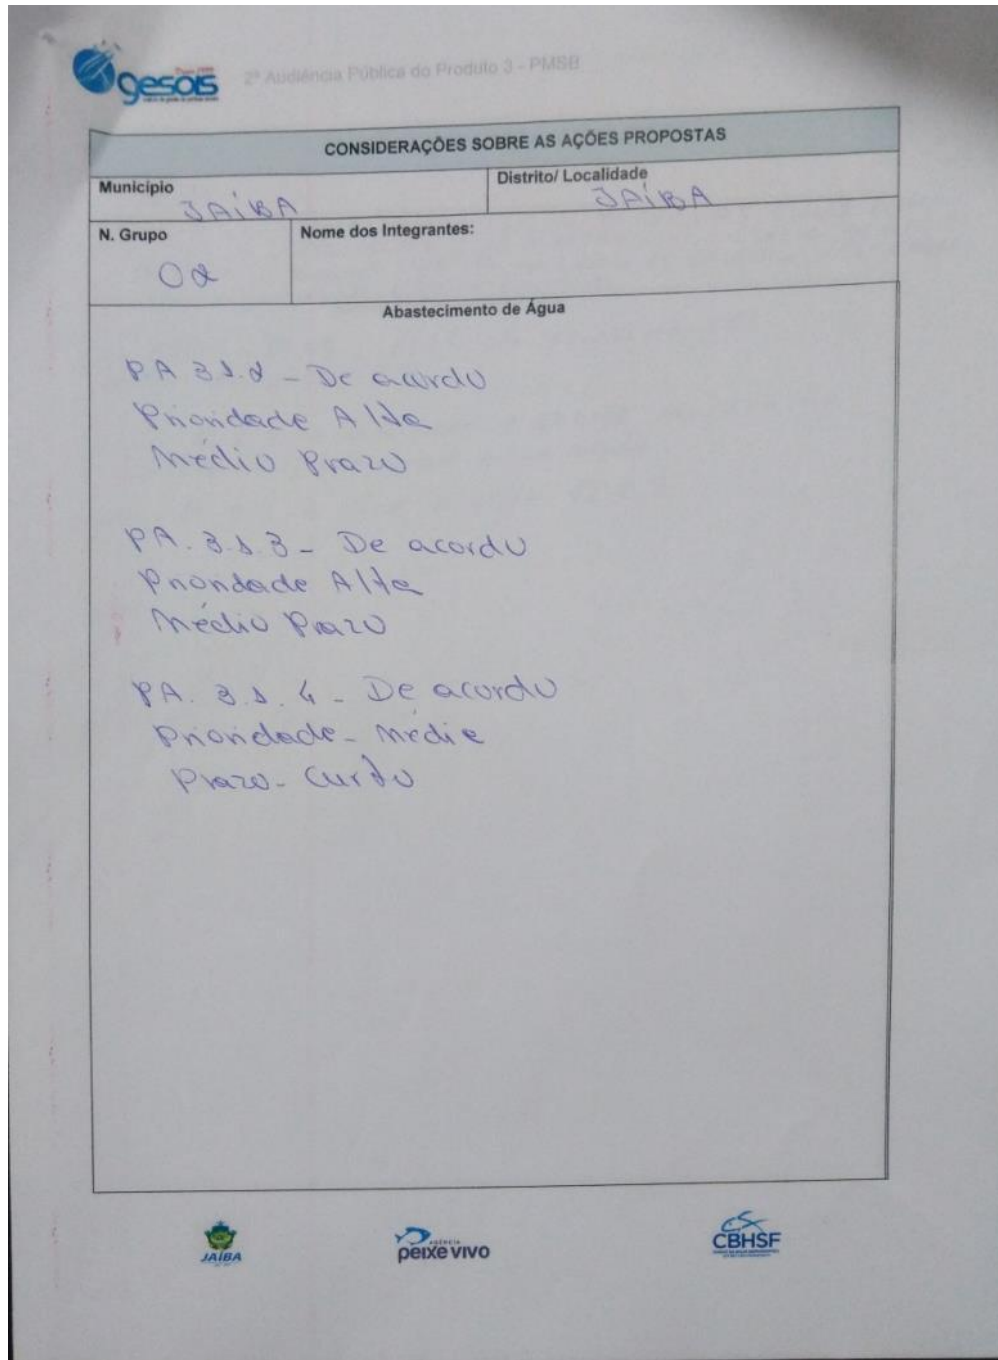 gesois
2ª Audiência Pública do Produto 3 - PMSB
CONSIDERAÇÕES SOBRE AS AÇÕES PROPOSTAS
Município
JAÍBA
Distrito/ Localidade
JAÍBA
N. Grupo
02
Nome dos Integrantes:
Abastecimento de Água
PA 3.1.2 - De acordo
Prioridade Alta
Médio Prazo
PA. 3.1.3 - De acordo
Prioridade Alta
Médio Prazo
PA. 3.1.4 - De acordo
Prioridade - Média
Prazo - Curto
JAÍBA
AGÊNCIA
peixe vivo
CBHSF